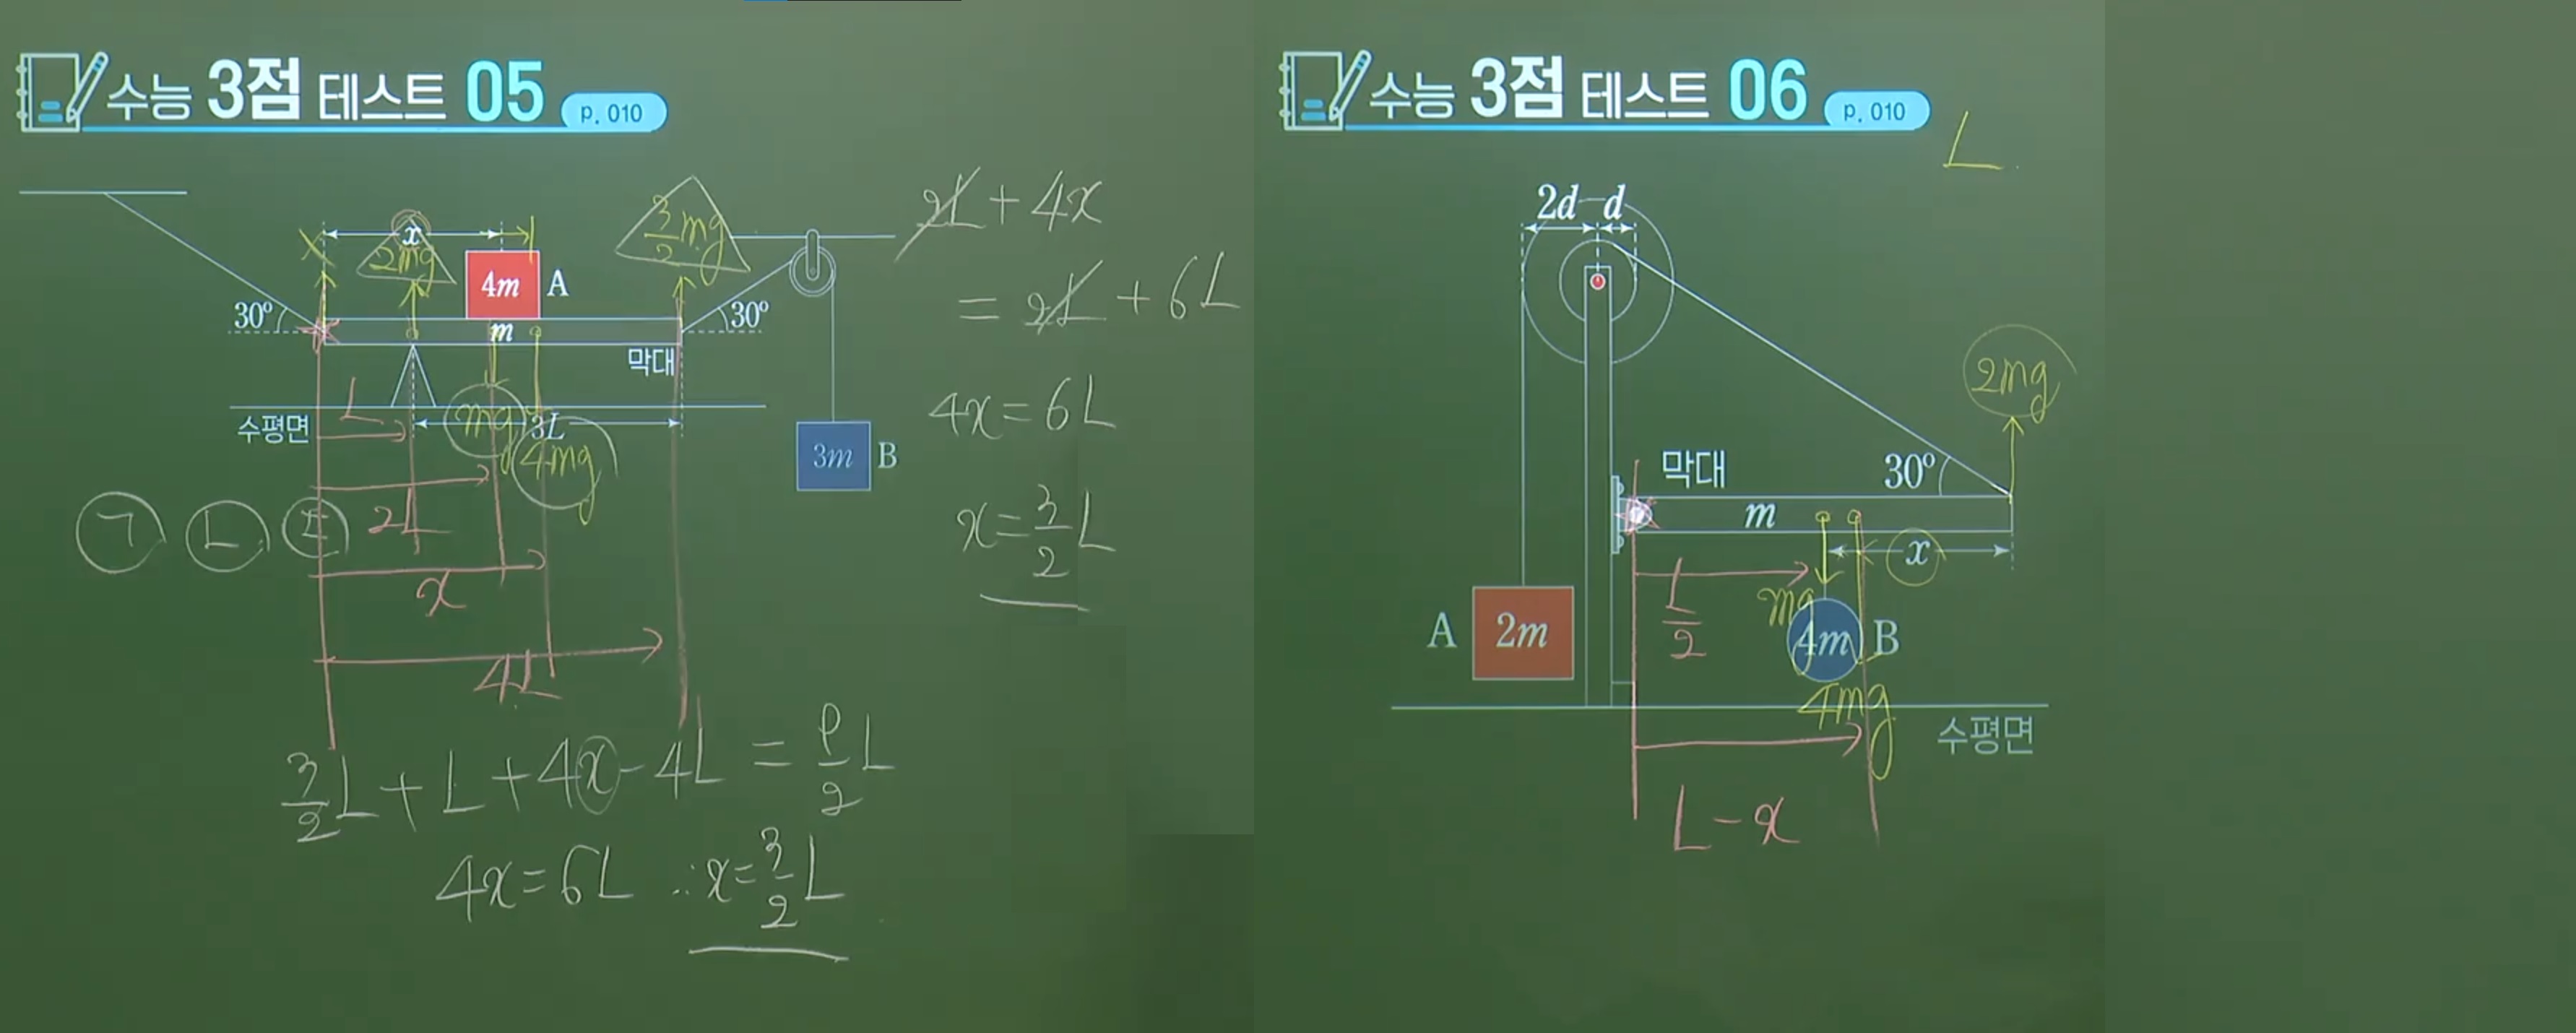 수능 3점 테스트 05 p. 010
x
2mg
3/2 mg
4m A
30º
m
30º
막대
수평면
L
mg
3L
4mg
3m B
ㄱ ㄴ ㄷ
2L
x
4L
3/2 L + L + 4x - 4L = 9/2 L
4x = 6L ∴ x = 3/2 L
2L + 4x
= 2L + 6L
4x = 6L
x = 3/2 L
수능 3점 테스트 06 p. 010
L
2d d
2mg
막대 30º
m
x
L/2
mg
A 2m
4m B
4mg
수평면
L - x